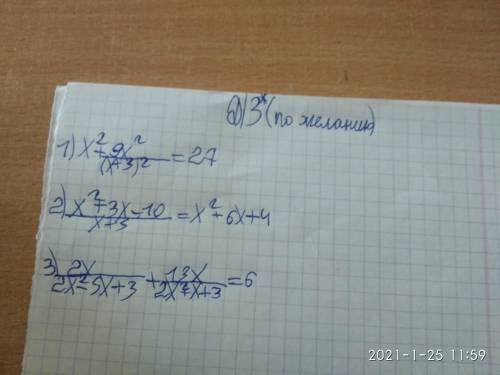 Д/З* (по желанию)
1) x² + 9x²/(x+3)² = 27
2) x²+3x-10/x+3 = x²+6x+4
3) 2x/2x²-5x+3 + 13x/2x²+x+3 = 6
2021-1-25 11:59